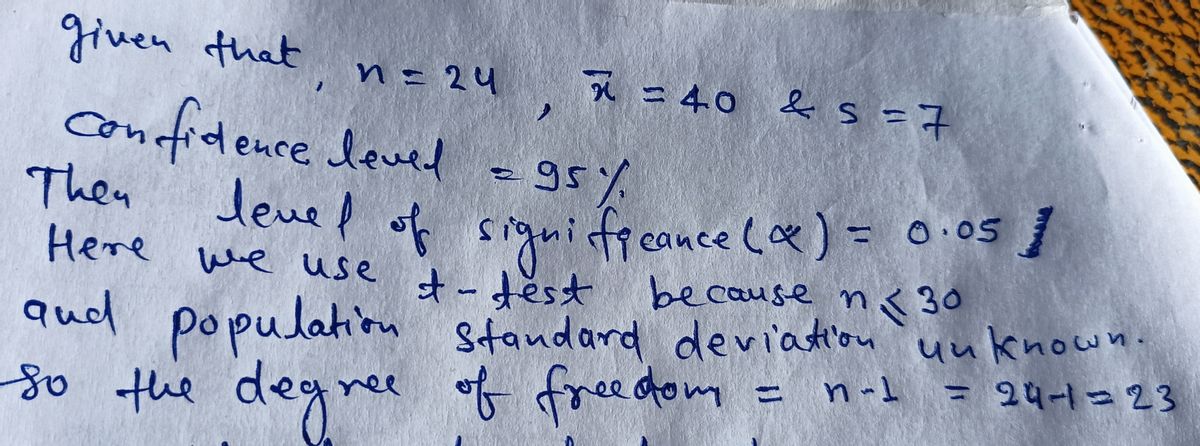 given that, n = 24, x̄ = 40 & s = 7
Confidence level = 95%
Then level of significance (α) = 0.05
Here we use t-test because n < 30
and population standard deviation unknown.
so the degree of freedom = n-1 = 24-1 = 23